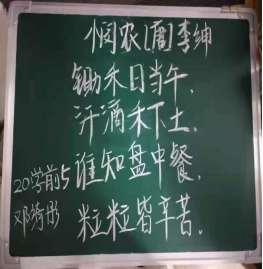 悯农[唐]李绅
锄禾日当午,
汗滴禾下土。
谁知盘中餐,
粒粒皆辛苦。
20学前5
邓琦彤